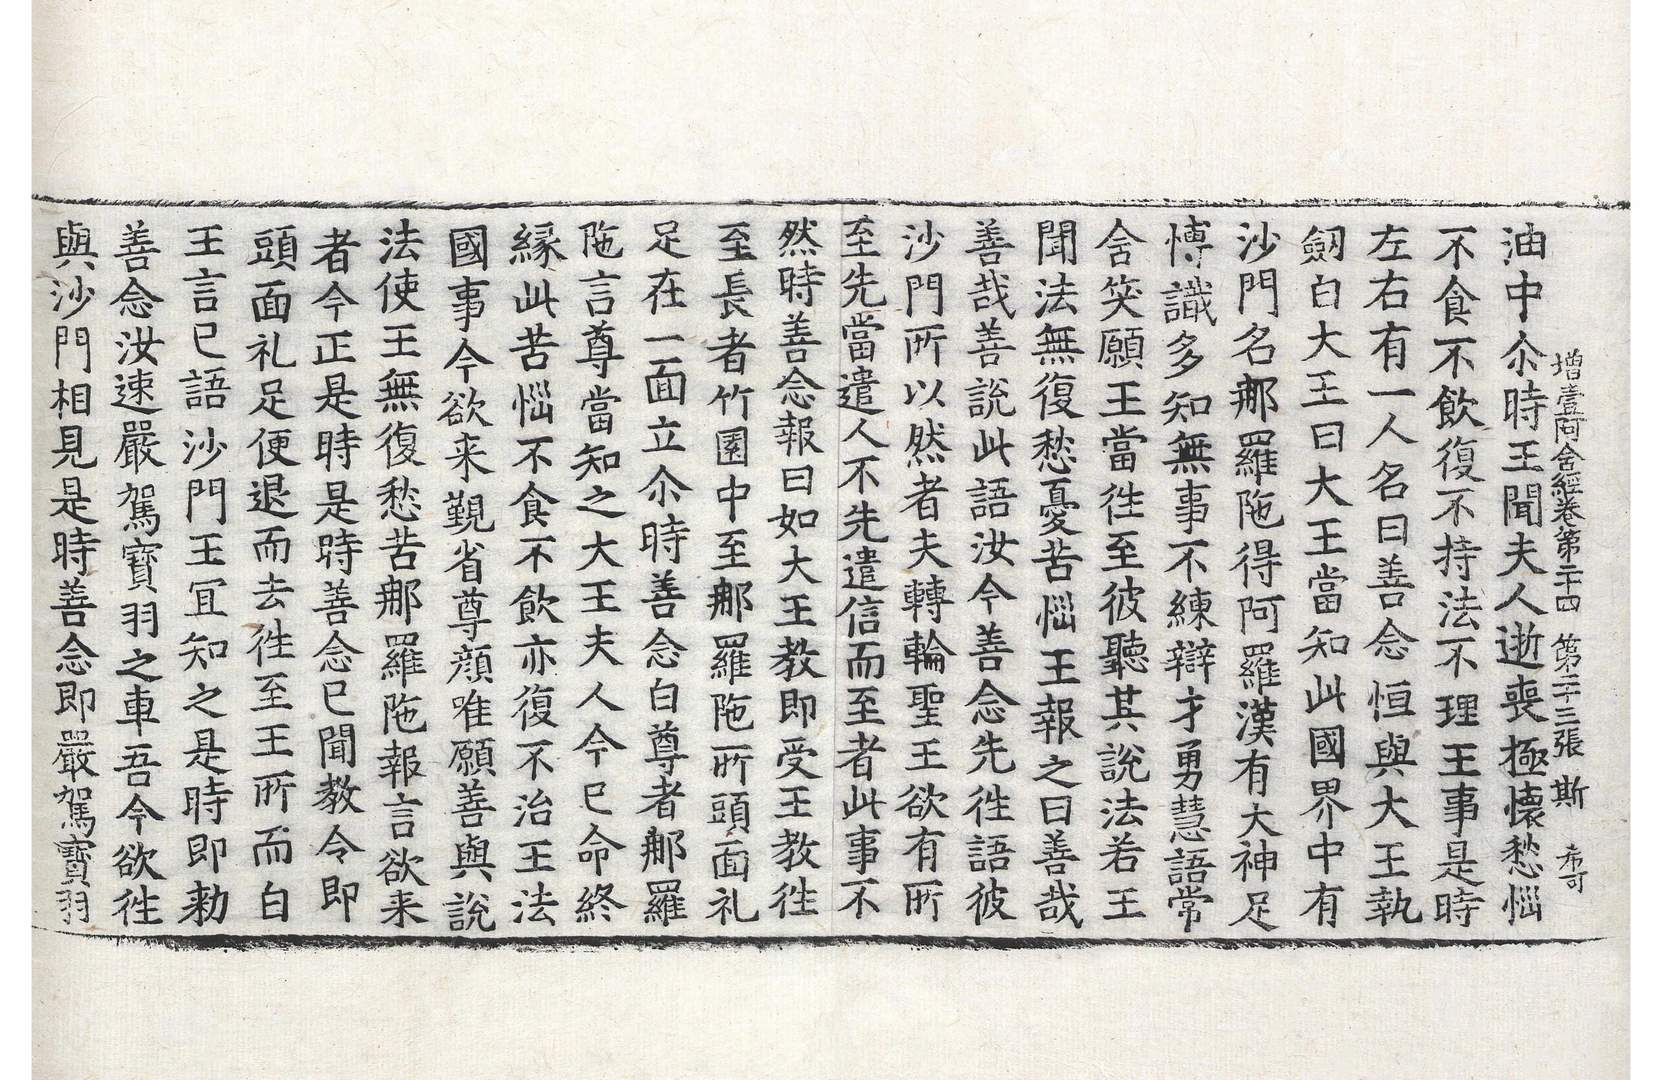 增壹阿含經卷第二十四 第二十三張 斯 希可
油中尒時王聞夫人逝喪極懷愁惱
不食不飲復不持法不理王事是時
左右有一人名曰善念恒與大王執
劒白大王曰大王當知此國界中有
沙門名那羅陁得阿羅漢有大神足
博識多知無事不練辯才勇慧語常
含笑願王當往至彼聽其說法若王
聞法無復愁憂苦惱王報之曰善哉
善哉善說此語汝今善念先往語彼
沙門所以然者夫轉輪聖王欲有所
至先當遣人不先遣信而至者此事不
然時善念報曰如大王教即受王教往
至長者竹園中至那羅陁所頭面礼
足在一面立尒時善念白尊者那羅
陁言尊當知之大王夫人今已命終
縁此苦惱不食不飲亦復不治王法
國事今欲来覲省尊顔唯願善與說
法使王無復愁苦那羅陁報言欲来
者今正是時是時善念已聞教令即
頭面礼足便退而去往至王所而白
王言已語沙門王宜知之是時即勑
善念汝速嚴駕寶羽之車吾今欲往
與沙門相見是時善念即嚴駕寶羽